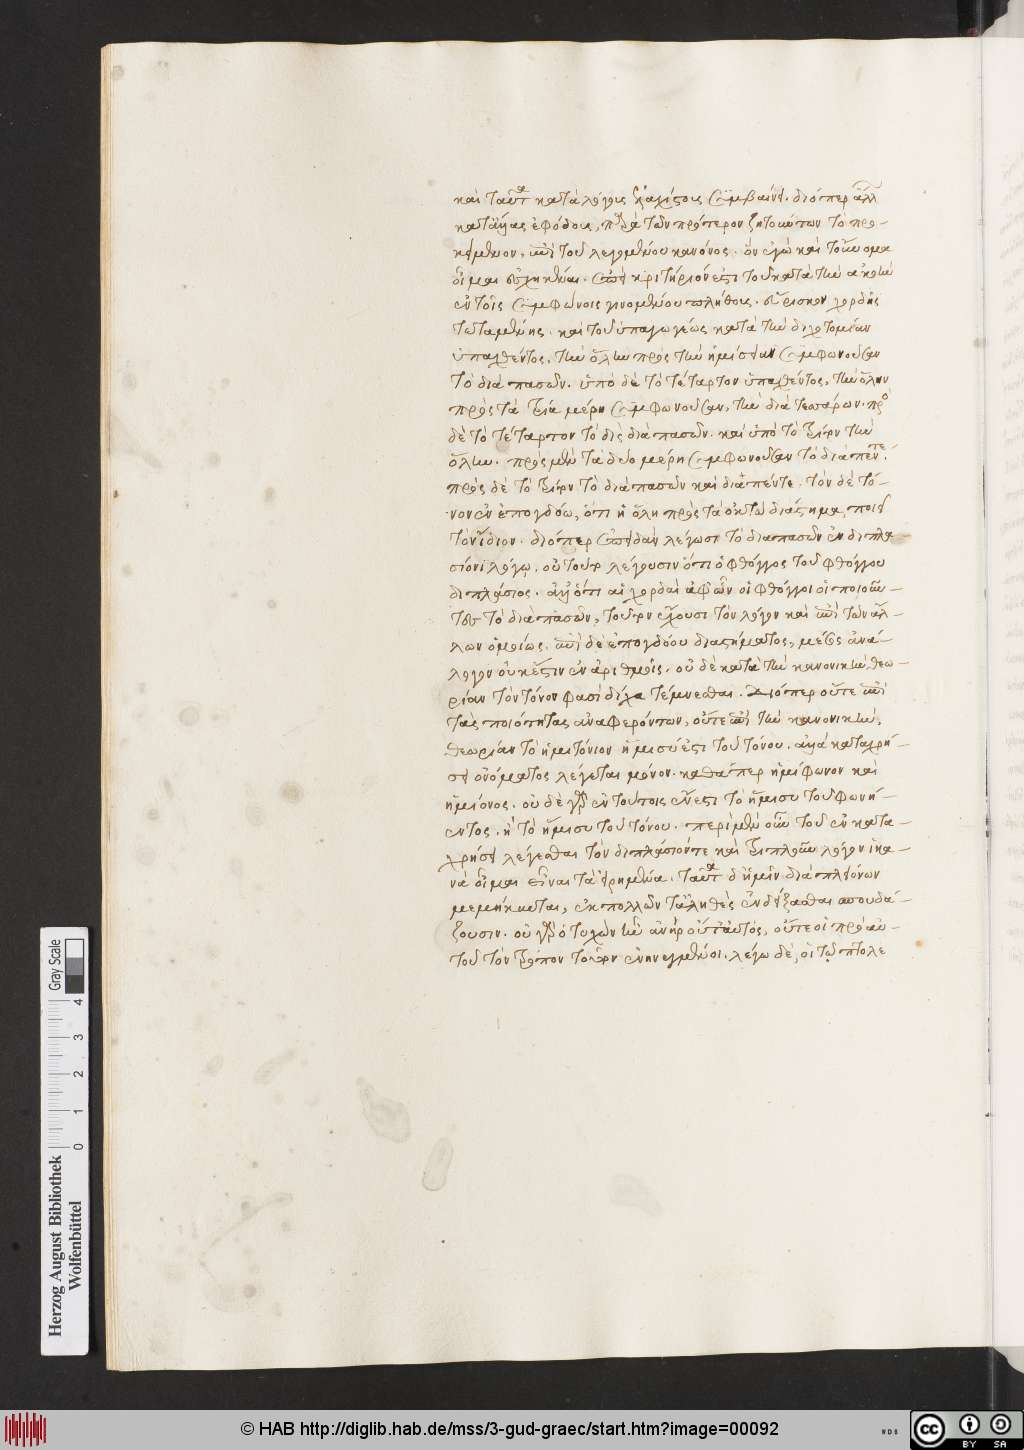 καὶ ταῦτα κατὰ λόγους ἐλαχίστους συμβαίνει. διόπερ ἄλλ
κατ' ἄλλας ἐφόδους, παρὰ τῶν πρότερον ζητουμένων τὸ προ-
κείμενον, ἀπὸ τοῦ λεγομένου κανόνος. ὃν ἐγὼ καὶ τοὔνομα
οἶμαι εἰληφέναι. ὥσπερ κριτήριόν ἐστι τοῦ κατὰ τὴν ἀκοὴν
ἐν τοῖς συμφώνοις γινομένου πλήθους. εὕρισκον χορδῆς
τεταμένης. καὶ τοῦ ὑπαγωγέως κατὰ τὴν διχοτομίαν
ὑπαχθέντος, τὴν ὅλην πρὸς τὴν ἡμίσειαν συμφωνοῦσαν
τὸ διὰ πασῶν. ὑπὸ δὲ τὸ τέταρτον ὑπαχθέντος, τὴν ὅλην
πρὸς τὰ τρία μέρη συμφωνοῦσαν, τὴν διὰ τεσσάρων. πρὸ
δὲ τὸ τέταρτον τὸ δὶς διὰ πασῶν. καὶ ὑπὸ τὸ τρίτον τὴν
ὅλην. πρὸς μὲν τὰ δύο μέρη συμφωνοῦσαν τὸ διὰ πέντε.
πρὸς δὲ τὸ τρίτον τὸ διὰ πασῶν καὶ διὰ πέντε. τὸν δὲ τό-
νον ἐν ἐπογδόω, ὅτι ἡ ὅλη πρὸς τὰ ὀκτὼ διάστημα ποιεῖ
τὸν ἴδιον. διόπερ ἐπειδὰν λέγωσι τὸ διαπασῶν ἐν διπλα
σίονι λόγω, οὐ τοῦτο λέγουσιν ὅτι ὁ φθόγγος τοῦ φθόγγου
διπλάσιος. ἀλλ' ὅτι αἱ χορδαὶ ἀφ' ὧν οἱ φθόγγοι οἱ ποιοῦν
τες τὸ διὰ πασῶν, τοῦτον ἔχουσι τὸν λόγον καὶ ἐπὶ τῶν ἄλ-
λων ὁμοίως. ἐπὶ δὲ ἐπογδόου διαστήματος, μέσος ἀνά-
λογον οὐκ ἔστιν ἐν ἀριθμοῖς. οὐδὲ κατὰ τὴν κανονικὴν θεω-
ρίαν τὸν τόνον φασὶ δίχα τέμνεσθαι. διόπερ οὔτε ἐπὶ
τὰς ποιότητας ἀναφερόντων, οὔτε ἐπὶ τὴν κανονικὴν,
θεωρίαν τὸ ἡμιτόνιον ἥμισύ ἐστι τοῦ τόνου. ἀλλὰ καταχρή-
σει ὀνόματος λέγεται μόνον. καθάπερ ἡμίφωνον καὶ
ἡμίονος. οὐδὲ γὰρ ἐν τούτοις ἔνεστι τὸ ἥμισυ τοῦ φωνή-
εντος. ἢ τὸ ἥμισυ τοῦ τόνου. περὶ μὲν οὖν τοῦ ἐν κατα-
χρήσει λέγεσθαι τὸν διπλάσιόν τε καὶ τριπλοῦν λόγον ἱκα-
νὰ οἶμαι εἶναι τὰ εἰρημένα. ταῦτα δ' ἡμῖν διὰ πλειόνων
μεμήκυσται, ἐκ πολλῶν τἀληθὲς ἐνδείξασθαι σπουδά-
ζουσιν. οὐ γὰρ ὁ τυχὼν ἦν ἀνὴρ οὔτ' αὐτὸς, οὔτε οἱ πρὸ αὐ-
τοῦ τὸν τρόπον τοῦτον ἐνηνεγμένοι. λέγω δὲ, οἱ τῶ πτολε
Herzog August Bibliothek
Wolfenbüttel
0 1 2 3 4
Gray Scale
© HAB http://diglib.hab.de/mss/3-gud-graec/start.htm?image=00092
cc BY SA